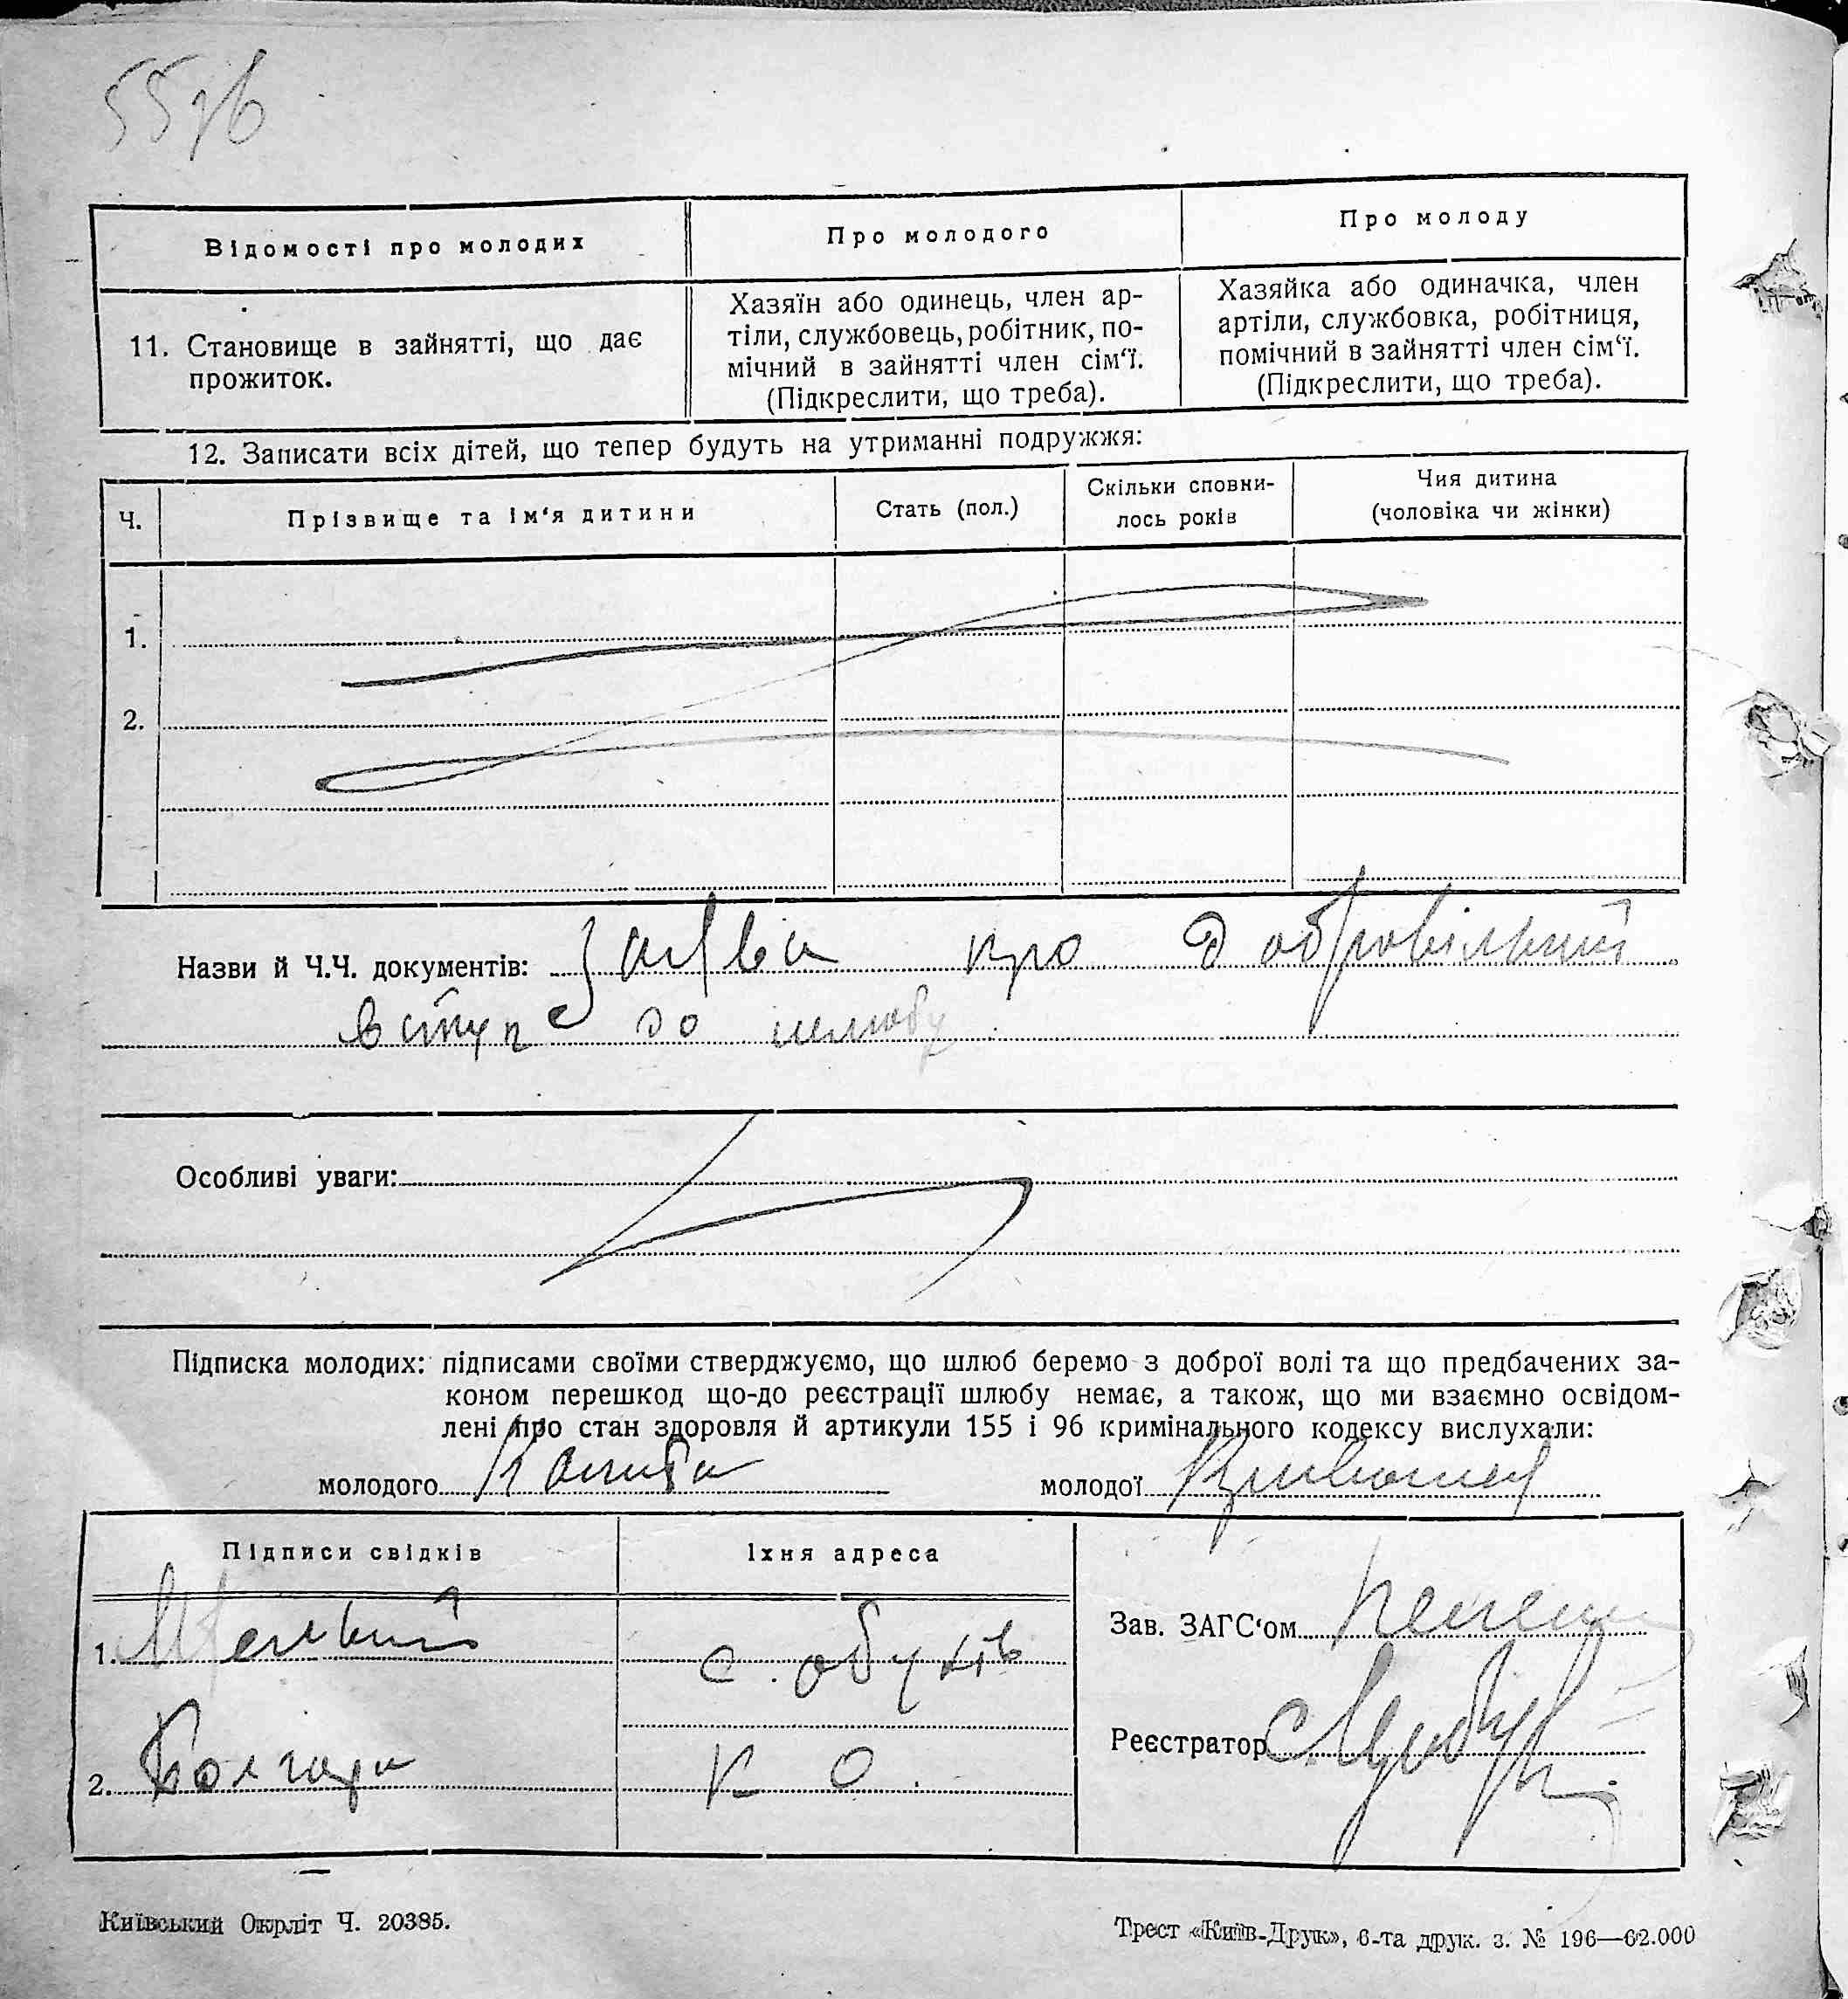 55зв
Відомості про молодих
Про молодого
Про молоду
11. Становище в зайнятті, що дає
прожиток.
Хазяїн або одинець, член ар-
тіли, службовець, робітник, по-
мічний в зайнятті член сім‘ї.
(Підкреслити, що треба).
Хазяйка або одиначка, член
артіли, службовка, робітниця,
помічний в зайнятті член сім‘ї.
(Підкреслити, що треба).
12. Записати всіх дітей, що тепер будуть на утриманні подружжя:
Ч.
Прізвище та ім‘я дитини
Стать (пол.)
Скільки сповни-
лось років
Чия дитина
(чоловіка чи жінки)
1.
2.
Назви й Ч.Ч. документів: Заява про добровільний
вступ до шлюбу
Особливі уваги:
Підписка молодих: підписами своїми стверджуємо, що шлюб беремо з доброї волі та що предбачених за-
коном перешкод що-до реєстрації шлюбу немає, а також, що ми взаємно освідом-
лені про стан здоровля й артикули 155 і 96 кримінального кодексу вислухали:
молодого
молодої
Підписи свідків
Їхня адреса
1.
с. Обухів
2.
Зав. ЗАГС‘ом
Реєстратор
Київський Окрліт Ч. 20385.
Трест «Київ-Друк», 6-та друк. з. № 196—62.000